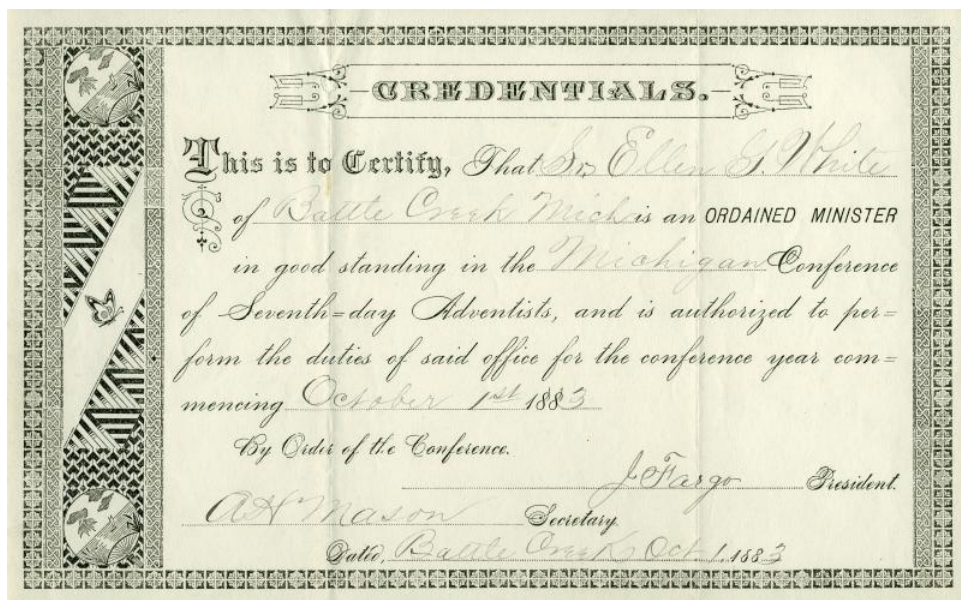 CREDENTIALS.
This is to Certify, That Sr. Ellen G. White
of Battle Creek Mich is an ORDAINED MINISTER
in good standing in the Michigan Conference
of Seventh=day Adventists, and is authorized to per=
form the duties of said office for the conference year com=
mencing October 1st 1883
By Order of the Conference.
J Fargo President.
A H Mason Secretary.
Dated, Battle Creek Oct 1, 1883